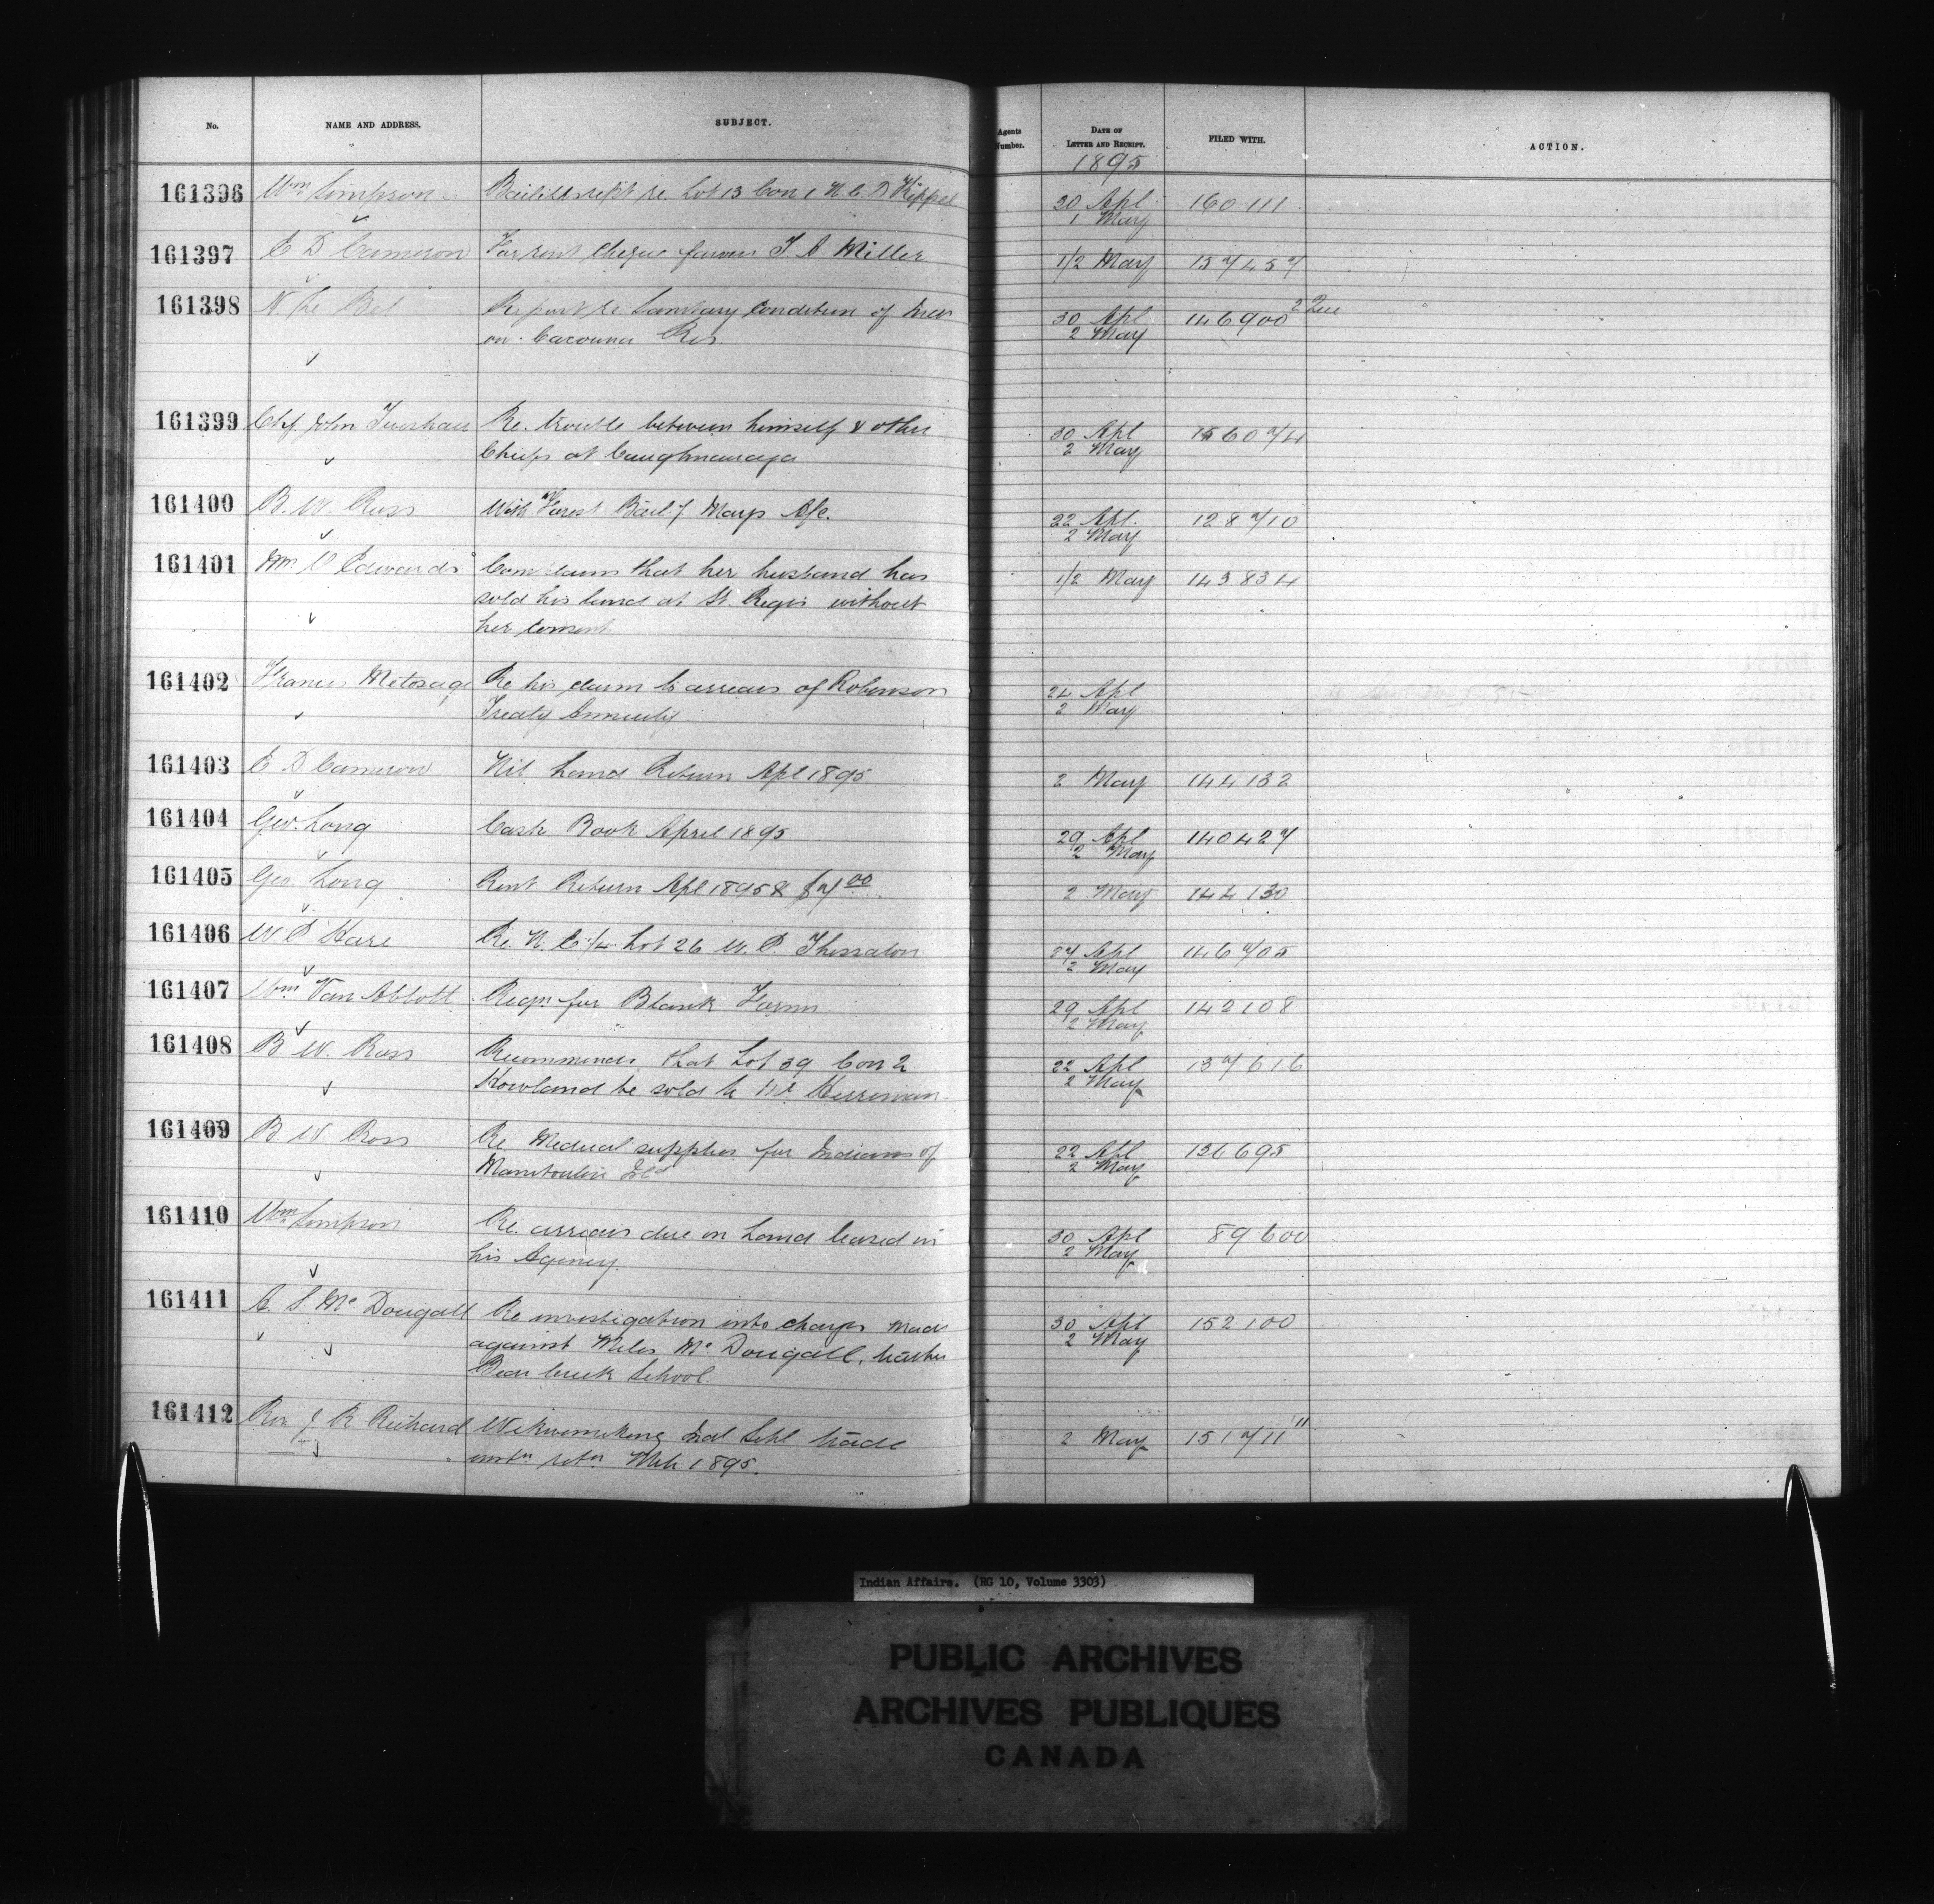 No. NAME AND ADDRESS. SUBJECT. Agents Number. DATE OF LETTER AND RECEIPT. FILED WITH. ACTION.
1895
161396 Wm Simpson re Lot 13 Con 1 N. C. D Keppel 30 Apl 160111
1 May
161397 E D Cameron For rent Cheque favour J. A Miller 1/2 May 157457
161398 N. Le Bel Report re Sanitary Condition of Inds 30 Apl 146900
on Cacouna Res. 2 May
161399 Chf. John Re. trouble between himself & other 30 Apl 156074
Chiefs at Caughnawaga 2 May
161400 B. W. Ross With Forest Bail & Mays A/c. 22 Apl. 128710
2 May
161401 Edwards Complains that her husband has 1/2 May 143834
sold his land at St. Regis without
her consent
161402 Francis Metosage Re his claim to arrears of Robinson 24 Apl
Treaty Annuity 2 May
161403 E D Cameron Nil Land Return Apl 1895 2 May 144132
161404 Geo. Long Cash Book April 1895 29 Apl 140427
2 May
161405 Geo Long Rent Return Apl 1895 & $7.00 2 May 144130
161406 W P Hare Re N. E 1/4 Lot 26 W. P. Thessalon 27 Apl 146705
2 May
161407 Wm Van Abbott Reqn for Blank Forms 29 Apl 142108
2 May
161408 B. W. Ross Recommends that Lot 39 Con 2 22 Apl 137616
Howland be sold to Mr Merriman 2 May
161409 B. W. Ross Re Medical supplies for Indians of 22 Apl 136695
Manitoulin Isd 2 May
161410 Wm Simpson Re. arrears due on Land leased in 30 Apl 89600
his Agency. 2 May
161411 A. S. Mc Dougall Re investigation into charges made 30 Apl 152100
against Miles Mc Dougall, teacher 2 May
Bear Creek School.
161412 Rev J R Richard Wikwemikong Indl Schl trade 2 May 151711
instn retn Mch 1895.
Indian Affairs. (RG 10, Volume 3303)
PUBLIC ARCHIVES
ARCHIVES PUBLIQUES
CANADA